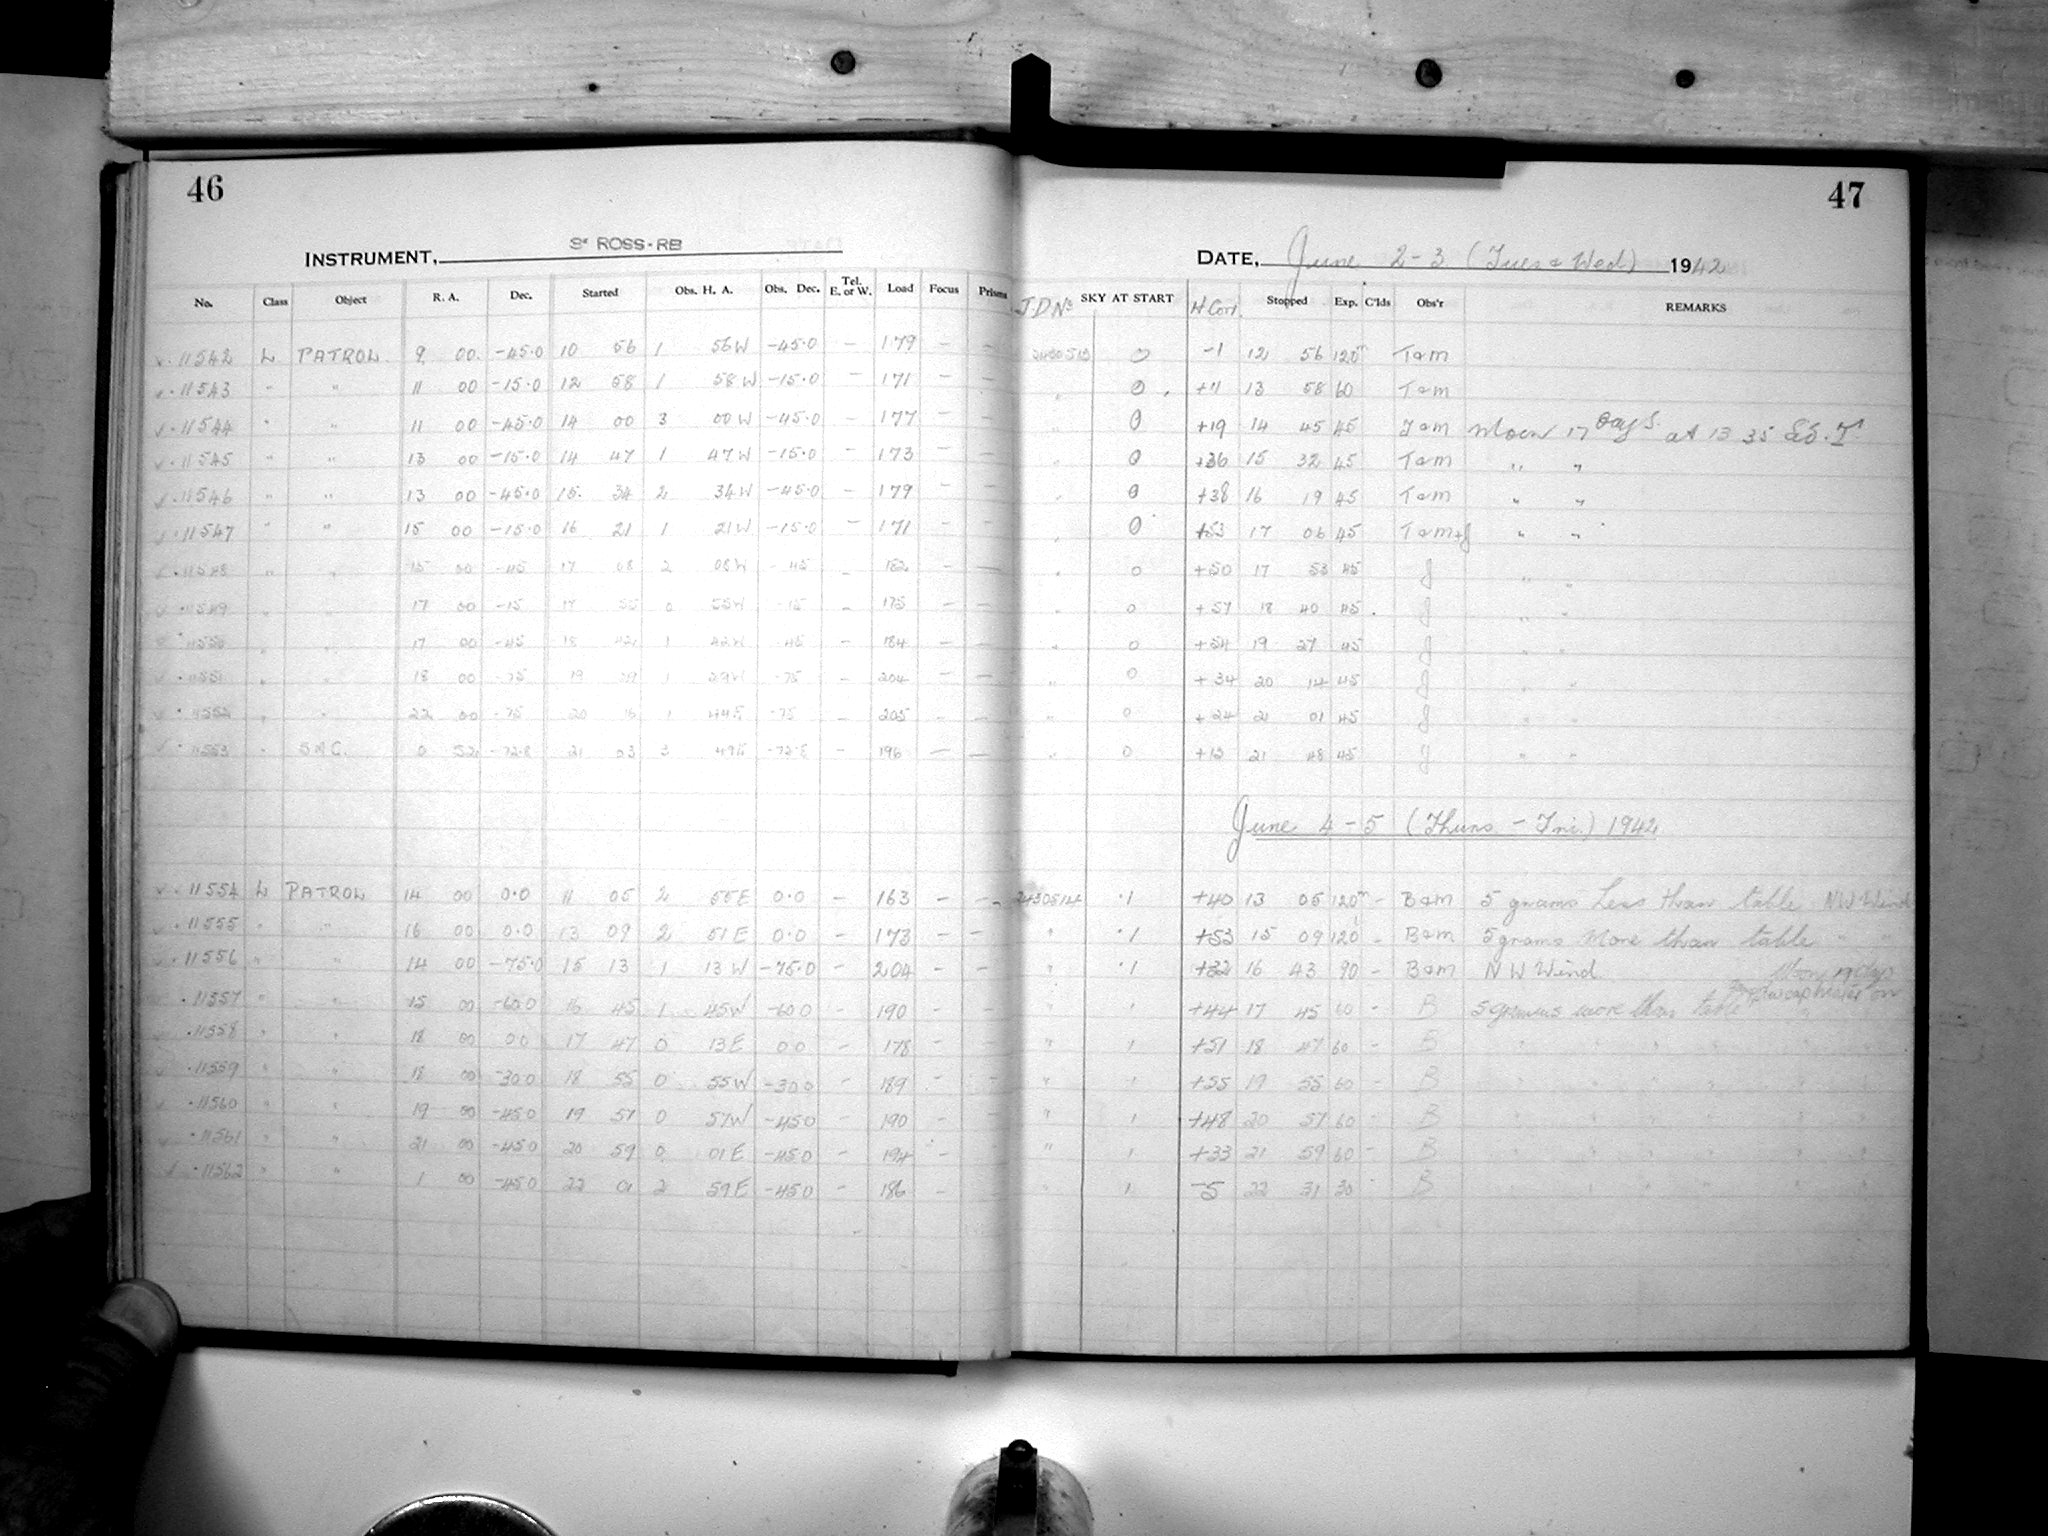 46
INSTRUMENT, ROSS-RB
No. Class Object R. A. Dec. Started Obs. H. A. Obs. Dec. Tel. E. or W. Load Focus Prisms
11542 L PATROL 9 00 -45.0 10 56 1 56W -45.0 — 179 — —
11543 " " 11 00 -15.0 12 58 1 58W -15.0 — 171 — —
11544 " " 11 00 -45.0 14 00 3 00W -45.0 — 177 — —
11545 " " 13 00 -15.0 14 47 1 47W -15.0 — 173 — —
11546 " " 13 00 -45.0 15 34 2 34W -45.0 — 179 — —
11547 " " 15 00 -15.0 16 21 1 21W -15.0 — 171 — —
11548 " " 15 00 -45 17 08 2 08W -45 — 182 — —
11549 " " 17 00 -15 17 55 0 55W -15 — 175 — —
11550 " " 17 00 -45 18 42 1 42W -45 — 184 — —
11551 " " 18 00 -75 19 29 1 29W -75 — 204 — —
11552 " " 22 00 -75 20 16 1 44E -75 — 205 — —
11553 " SMC. 0 52 -72.8 21 03 3 49E -72.8 — 196 — —
11554 L PATROL 14 00 0.0 11 05 2 55E 0.0 — 163 — —
11555 " " 16 00 0.0 13 09 2 51E 0.0 — 173 — —
11556 " " 14 00 -75.0 15 13 1 13W -75.0 — 204 — —
11557 " " 15 00 -60.0 16 45 1 45W -60.0 — 190 — —
11558 " " 18 00 0.0 17 47 0 13E 0.0 — 178 — —
11559 " " 18 00 -30.0 18 55 0 55W -30.0 — 189 — —
11560 " " 19 00 -45.0 19 57 0 57W -45.0 — 190 — —
11561 " " 21 00 -45.0 20 59 0 01E -45.0 — 194 — —
11562 " " 1 00 -45.0 22 01 2 59E -45.0 — 186 — —
47
DATE, June 2-3 (Tues & Wed) 1942
J D No SKY AT START H Corr. Stopped Exp. C'lds Obs'r REMARKS
2430513 0 -1 12 56 120m T&M
" 0 +11 13 58 60 T&M
" 0 +19 14 45 45 T&M Moon 17 Days at 13 35 Sd. T
" 0 +36 15 32 45 T&M " "
" 0 +38 16 19 45 T&M " "
" 0 +53 17 06 45 T&M+J " "
" 0 +50 17 53 45 J " "
" 0 +57 18 40 45 J " "
" 0 +54 19 27 45 J " "
" 0 +34 20 14 45 J " "
" 0 +24 21 01 45 J " "
" 0 +12 21 48 45 J " "
June 4-5 (Thurs - Fri.) 1942
2430514 .1 +40 13 05 120m - B&M 5 grams Less than table NW Wind
" .1 +53 15 09 120 - B&M 5 grams More than table " "
" .1 +32 16 43 90 - B&M NW Wind Moon
" " +44 17 45 60 - B 5 grams more than table heater on
" 1 +51 18 47 60 - B " " " "
" 1 +55 19 55 60 - B " " " "
" 1 +48 20 57 60 - B " " " "
" 1 +33 21 59 60 - B " " " "
" 1 -5 22 31 30 - B " " " "